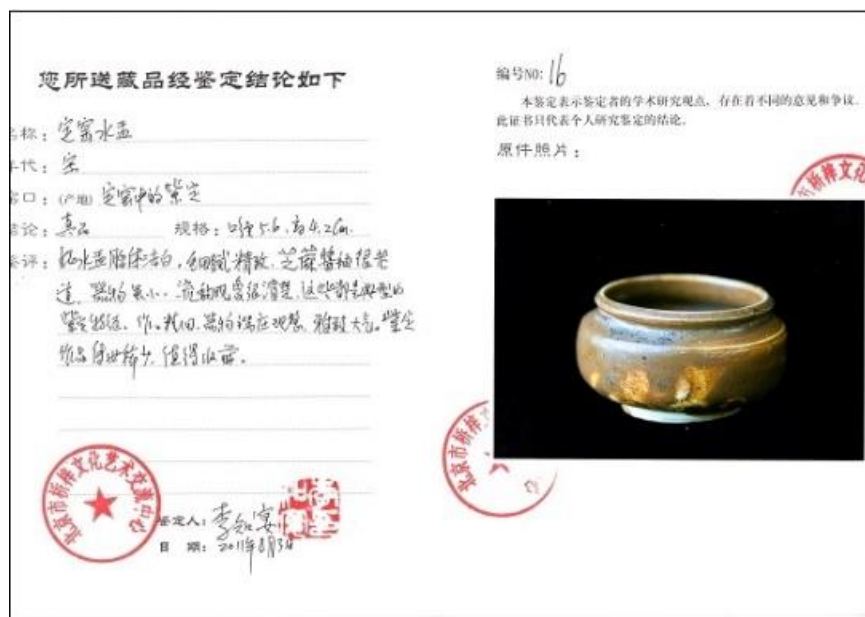 您所送藏品经鉴定结论如下
名称：定窑水盂
年代：宋
窑口：(产地) 定窑中的紫定
结论：真品 规格：口径5.6.高4.2cm.
鉴评：此水盂胎体洁白，细腻精致.芝麻酱釉很老
道，器物虽小.流动现象很清楚，这些都是典型的
紫定特征.作工精细.器物端庄规整，雅致大气。紫定
作品传世稀少，值得收藏。
北京市桥梓文化艺术交流中心
鉴定人：李知宴
日期：2011年8月3日
编号NO: 16
本鉴定表示鉴定者的学术研究观点，存在着不同的意见和争议，
此证书只代表个人研究鉴定的结论。
原件照片：
市桥梓文化
北京市桥梓文